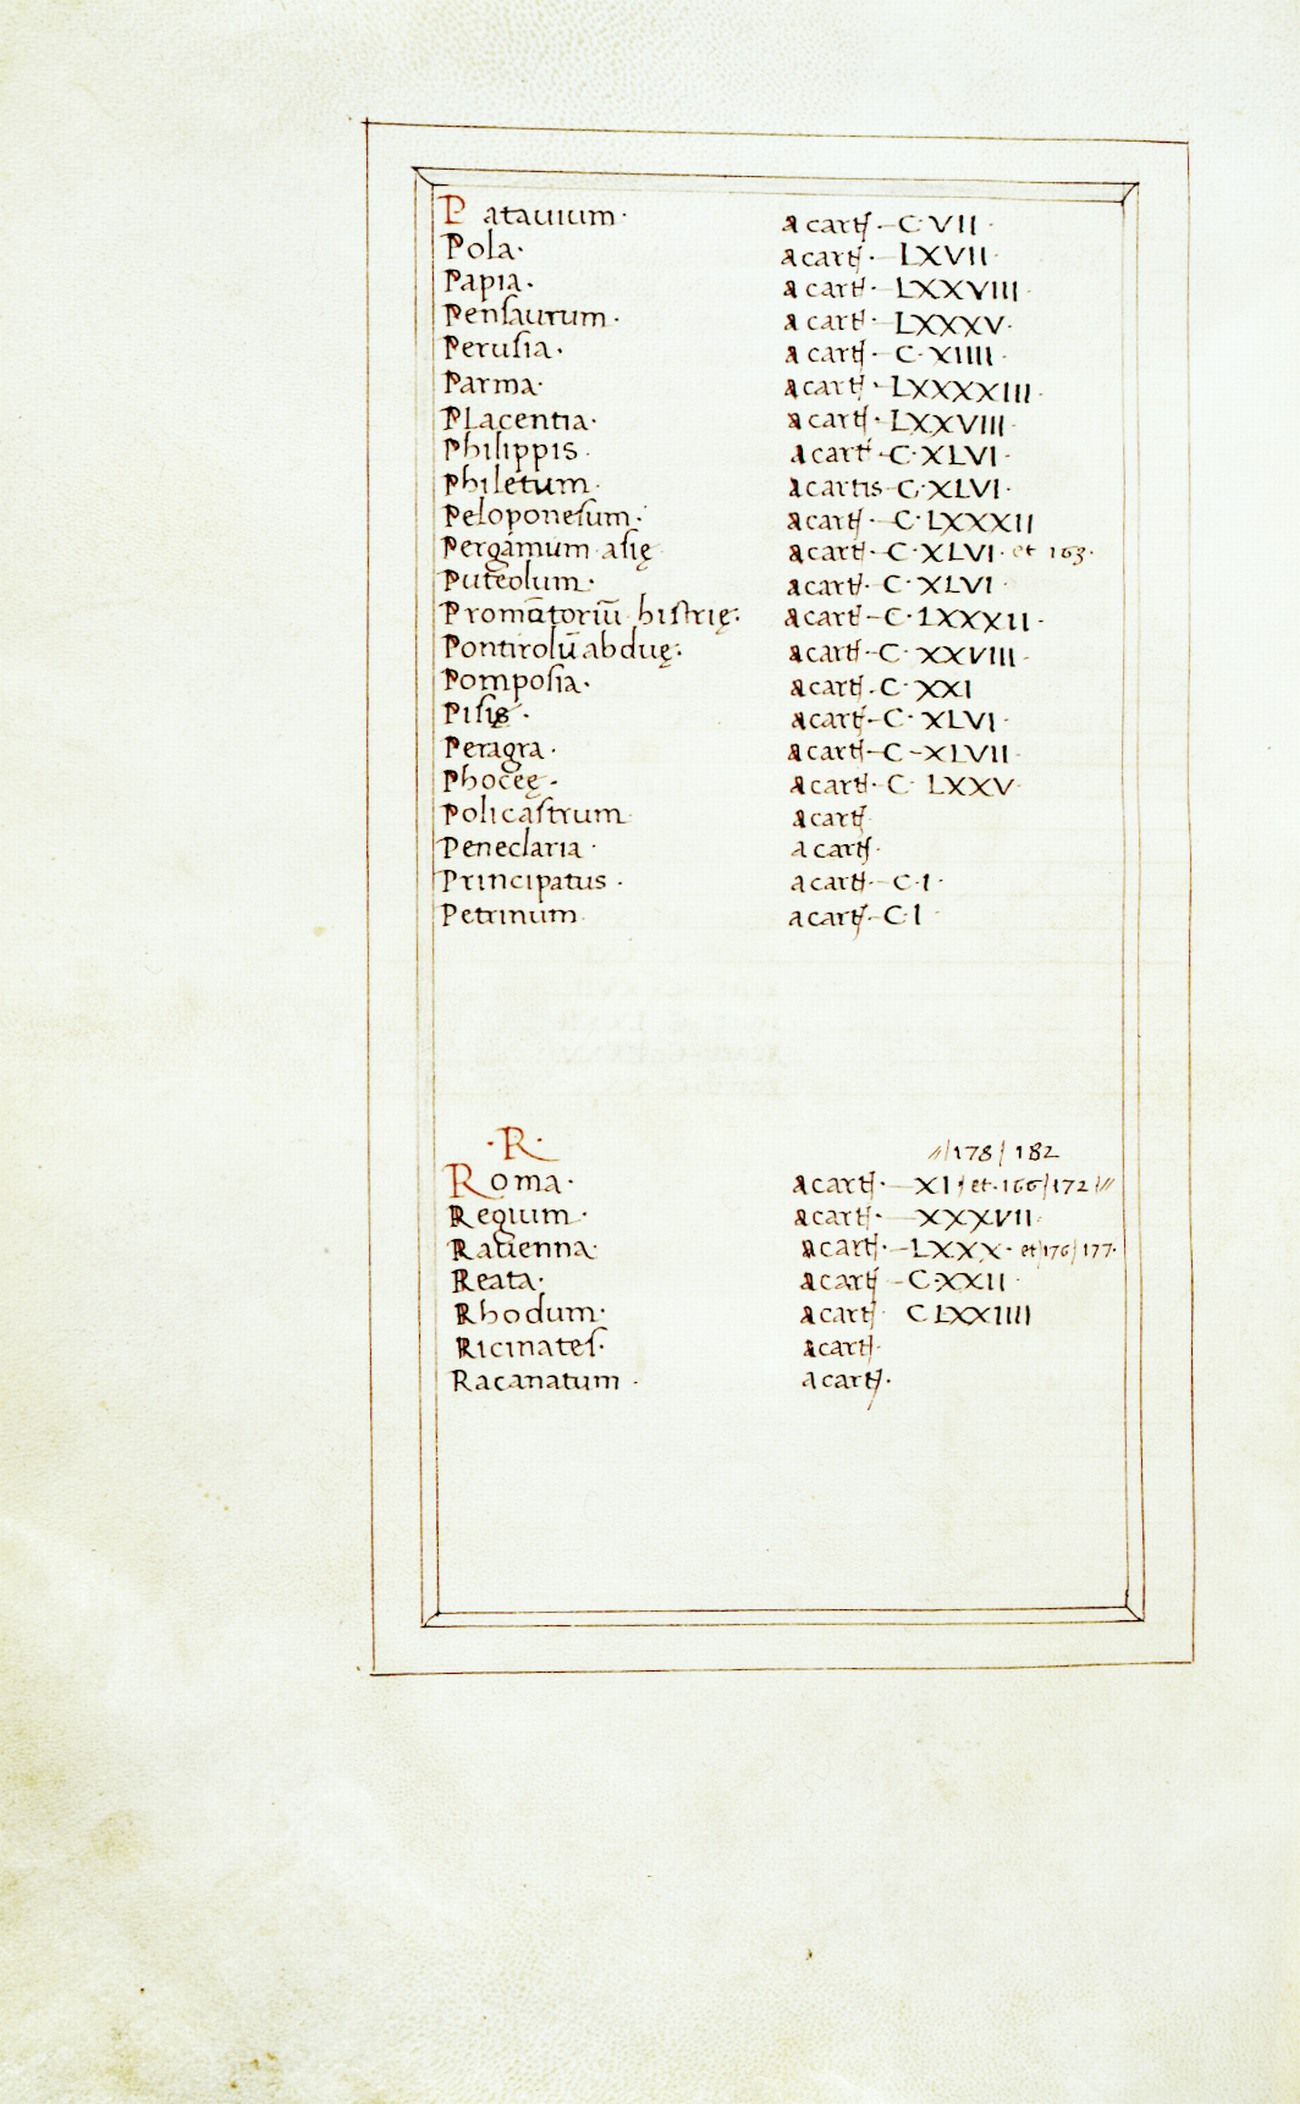 Patauium· a cart̄· – C·VII·
Pola· a cart̄· – LXVII·
Papia· a cart̄· – LXXVIII·
Penſaurum· a cart̄· – LXXXV·
Peruſia· a cart̄· – C·XIIII·
Parma· a cart̄· – LXXXXIII·
PLacentia· a cart̄· – LXXVIII·
Philippis· a cart̄ – C·XLVI·
Philetum· a cartis – C·XLVI·
Peloponeſum· a cart̄· – C·LXXXII
Pergamum aſię a cart̄· – C·XLVI· et 163·
Puteolum· a cart̄· – C·XLVI·
Promātoriū hiſtrię· a cart̄ – C·LXXXII·
Pontirolū abduę· a cart̄ – C·XXVIII·
Pompoſia· a cart̄· C·XXI
Piſię· a cart̄ – C·XLVI·
Peragra· a cart̄ – C – XLVII·
Phoceę· a cart̄· C·LXXV·
Policaſtrum a cart̄
Peneclaria· a cart̄·
Principatus· a cart̄· – C·I·
Petrinum a cart̄· – C·I·
·R·
//|178| 182
Roma· a cart̄· – XI| et·166|172|//
Regium· a cart̄· – XXXVII·
Rauenna· a cart̄· – LXXX· et|176|177·
Reata· a cart̄ – C·XXII·
Rhodum· a cart̄ C LXXIIII
Ricinateſ· a cart̄·
Racanatum· a cart̄·